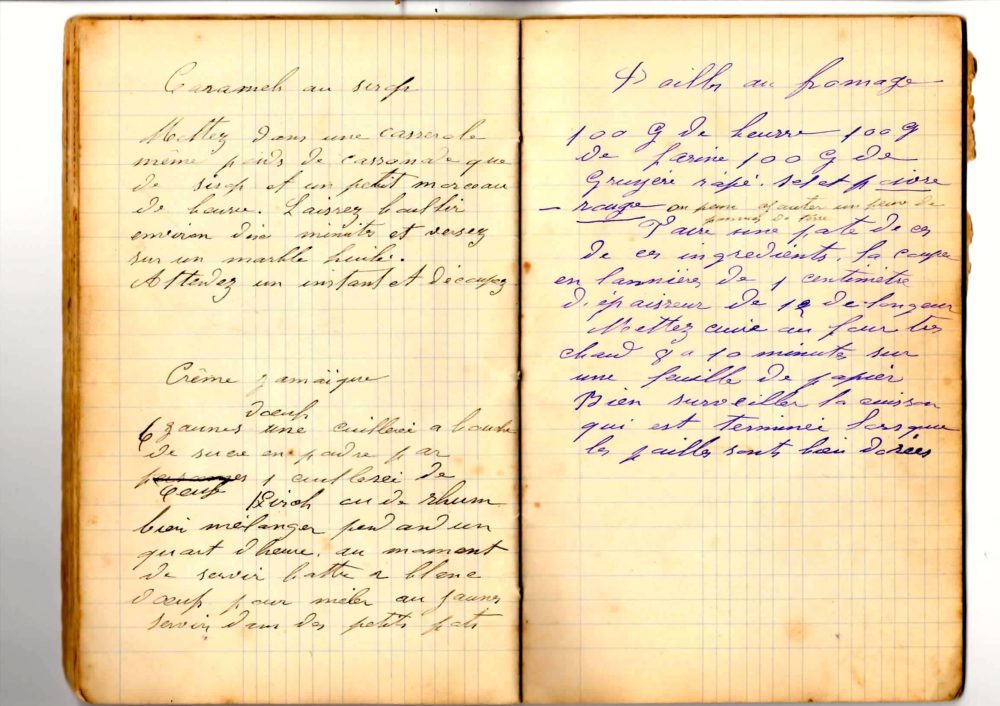 Caramels au sirop
Mettez dans une casserole
même poids de cassonade que
de sirop et un petit morceau
de beurre. Laissez bouillir
environ dix minutes et versez
sur un marble huilé.
Attendez un instant et découpez
Crème jamaïque
d'oeufs
6 jaunes une cuillerei a bouche
de sucre en poudre par
oeuf 1 cuillerei de
Kirch ou de rhum
bien mélanger pendand un
quart d'heure. au moment
de servir battre 2 blanc
d'oeufs pour mêler au jaunes
servir dans des petits pots
Pailles au fromage
100 G de beurre 100 g
de farine 100 G de
Gruyère rapé. sel et poivre
rouge on peu ajouter un peu de
pommes de terre
Faire une pate de ces
de ces ingredients. la couper
en lannières de 1 centimètre
d'épaisseur de 12 de longeur
Mettez cuire au four tres
chaud 8 a 10 minutes sur
une feuille de papier
Bien surveiller la cuisson
qui est terminée lorsque
les pailles sonts bien dorées